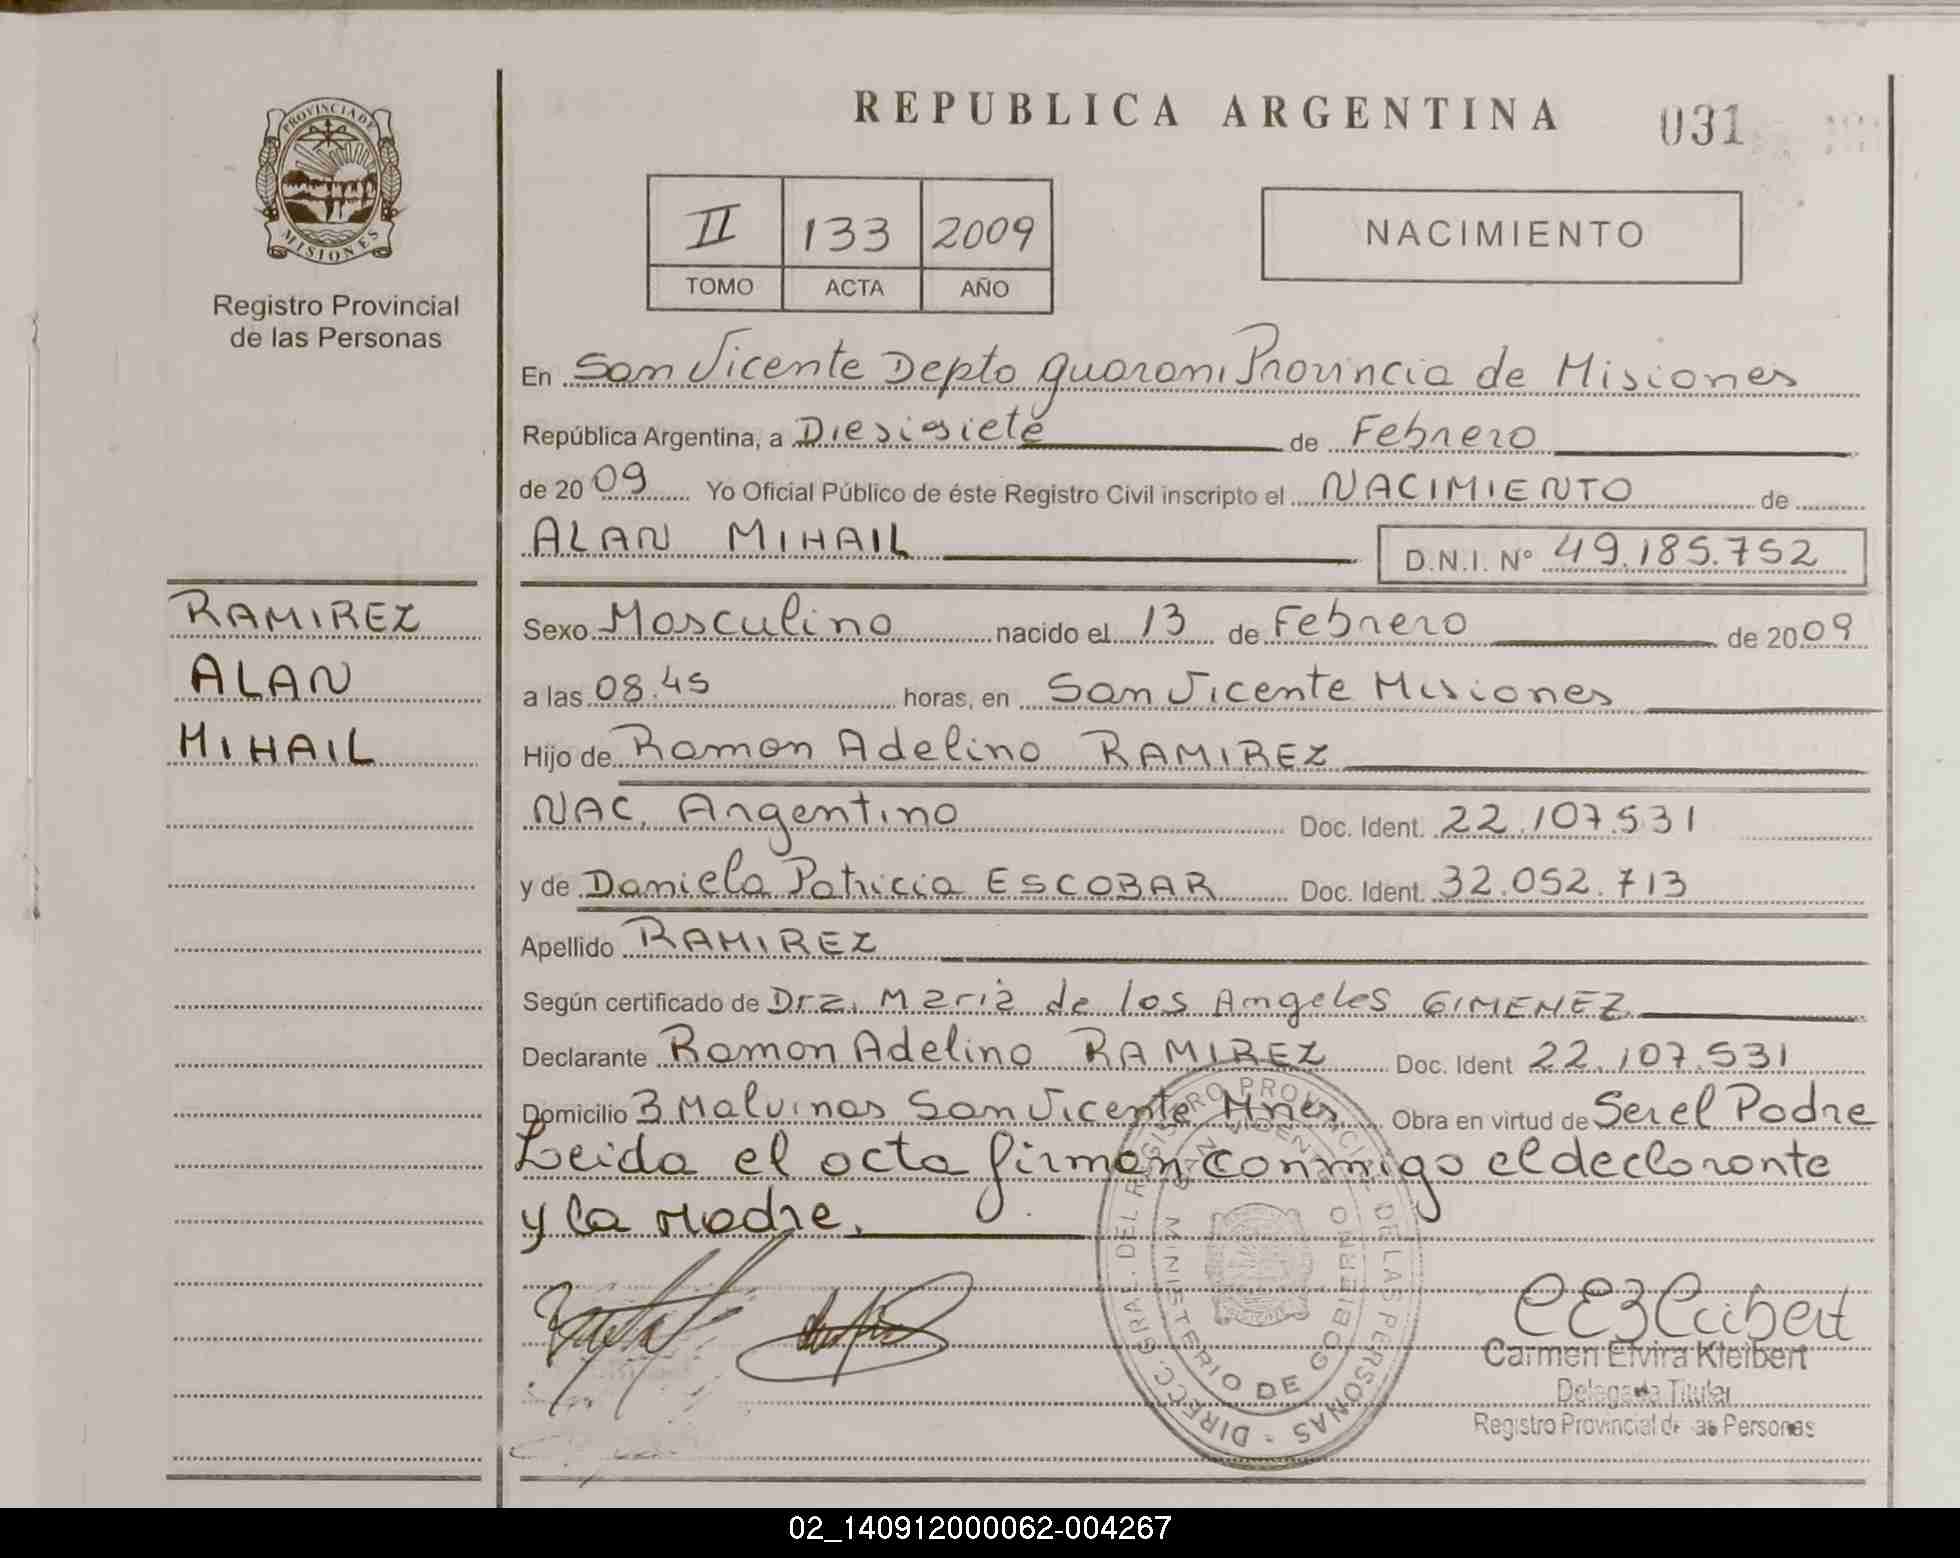 REPUBLICA ARGENTINA
031
PROVINCIA DE
MISIONES
Registro Provincial
de las Personas
II 133 2009
TOMO ACTA AÑO
NACIMIENTO
En San Vicente Depto guarani Provincia de Misiones
República Argentina, a Diesisiete de Febrero
de 2009 Yo Oficial Público de éste Registro Civil inscripto el NACIMIENTO de
ALAN MIHAIL D.N.I. Nº 49.185.752
RAMIREZ
ALAN
MIHAIL
Sexo Masculino nacido el 13 de Febrero de 2009
a las 08.45 horas, en San Vicente Misiones
Hijo de Ramon Adelino RAMIREZ
NAC. Argentino Doc. Ident. 22.107.531
y de Daniela Patricia ESCOBAR Doc. Ident. 32.052.713
Apellido RAMIREZ
Según certificado de Dra. Maria de los Angeles GIMENEZ
Declarante Ramon Adelino RAMIREZ Doc. Ident 22.107.531
Domicilio B Malvinas San Vicente Mnes Obra en virtud de Ser el Padre
Leida el acta firman conmigo el declarante
y la Madre.
DIRECC. GRAL. DEL REGISTRO PROVINCIAL DE LAS PERSONAS -
SAN VICENTE
MINISTERIO DE GOBIERNO
Carmen Elvira Kleibert
Delegada Titular
Registro Provincial de las Personas
02_140912000062-004267